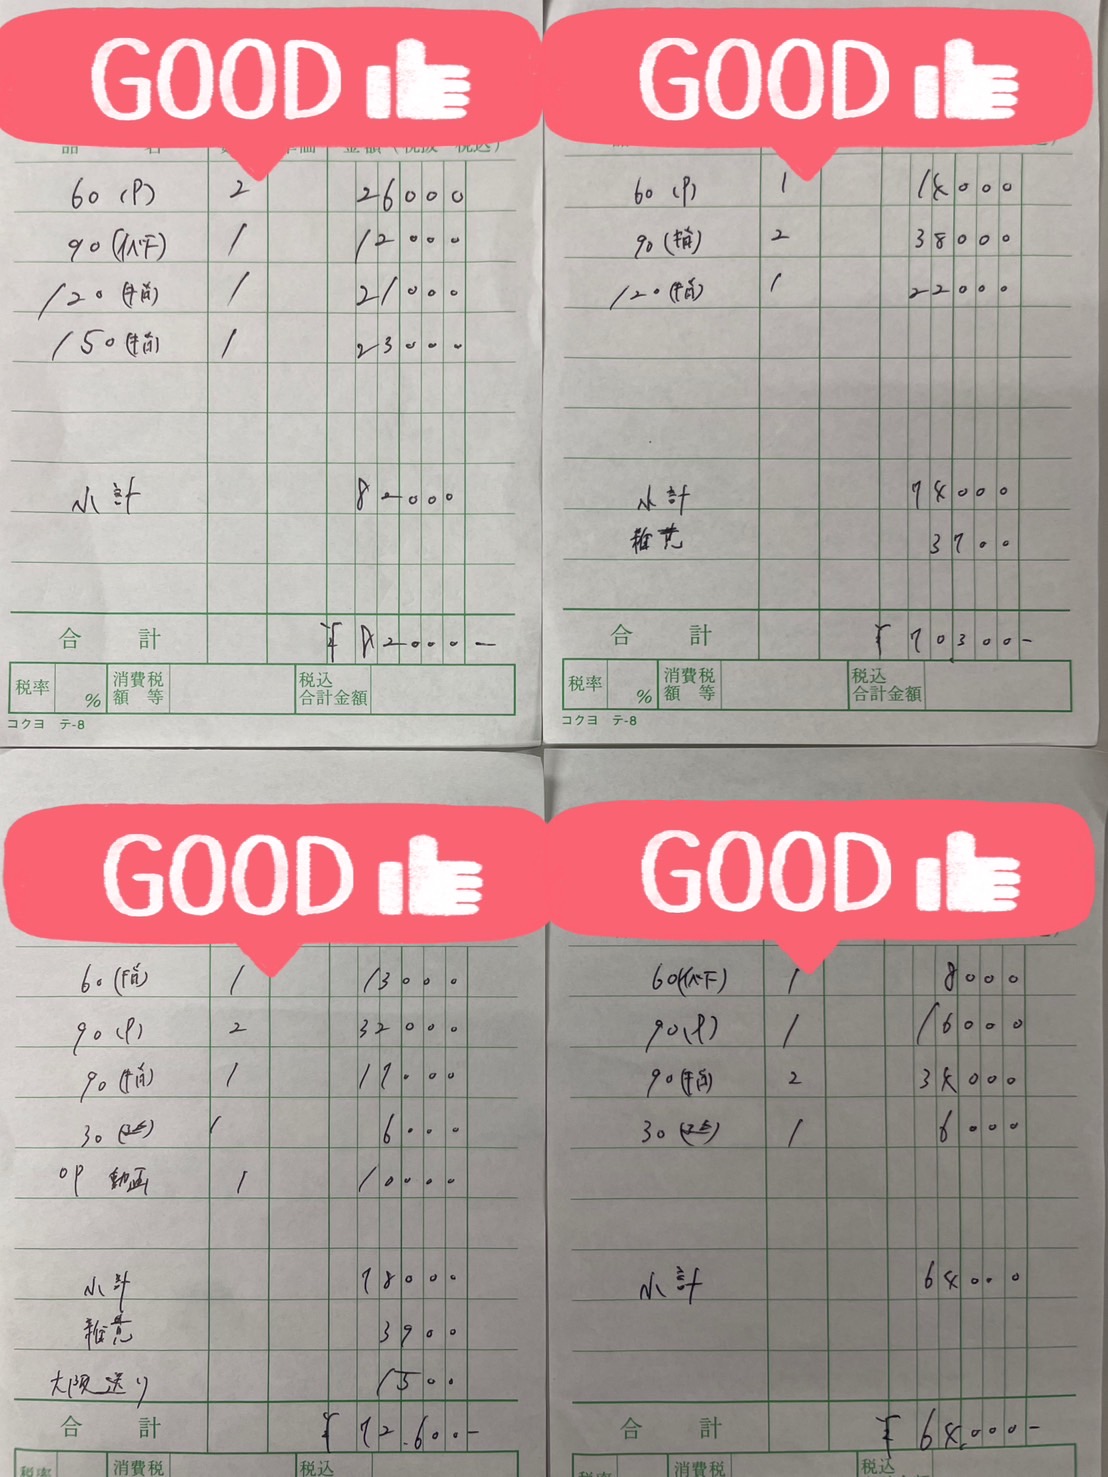 GOOD
60 (P) 2 26000
90 (イベ下) 1 12000
120 (指) 1 21000
150 (指) 1 23000
小計 82000
合計 ¥82000-
税率 % 消費税額等 税込合計金額
コクヨ テ-8
GOOD
60 (P) 1 14000
90 (指) 2 38000
120 (指) 1 22000
小計 74000
雑費 3700
合計 ¥70300-
税率 % 消費税額等 税込合計金額
コクヨ テ-8
GOOD
60 (指) 1 13000
90 (P) 2 32000
90 (指) 1 17000
30 (延) 1 6000
OP 動画 1 10000
小計 78000
雑費 3900
大阪送り 1500
合計 ¥72,600-
消費税 税込
GOOD
60 (イベ下) 1 8000
90 (P) 1 16000
90 (指) 2 34000
30 (延) 1 6000
小計 64000
合計 ¥64,000-
消費税 税込